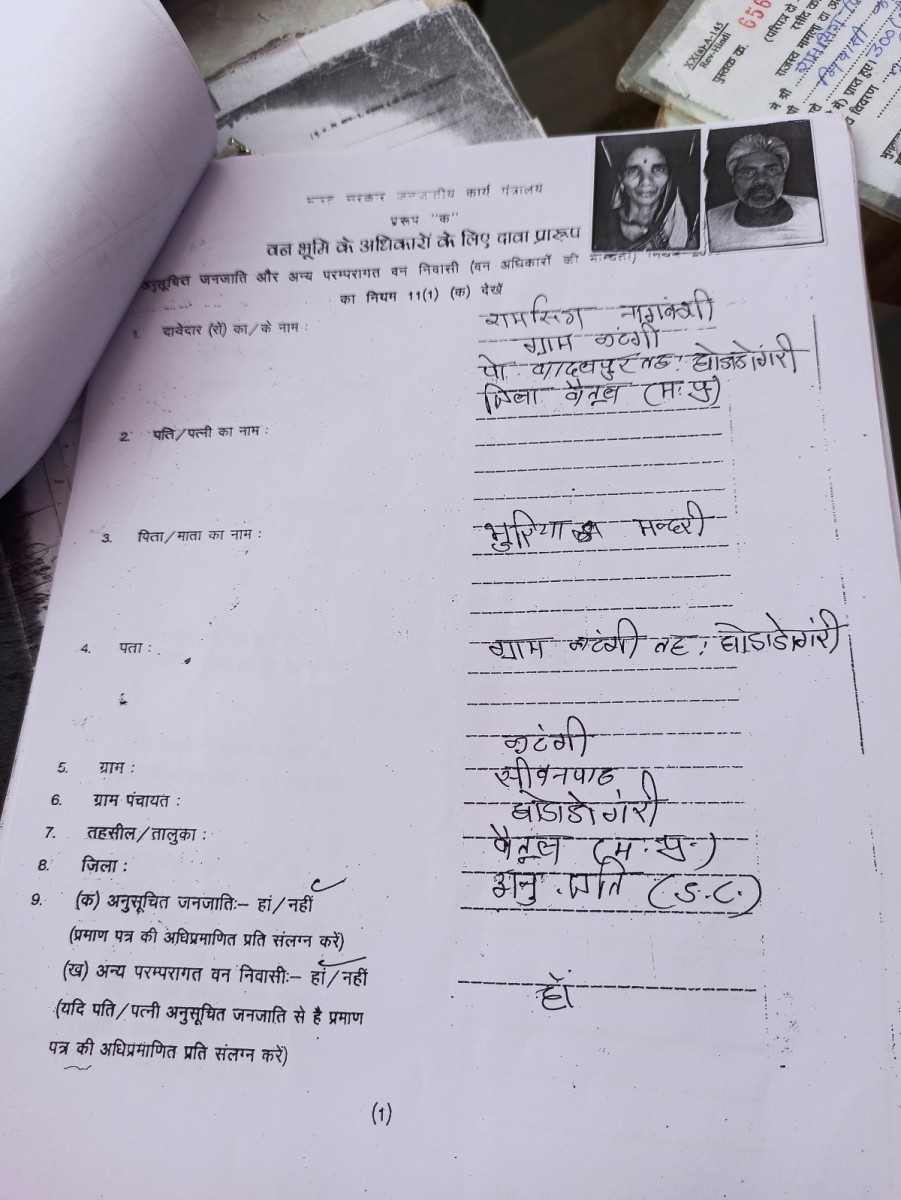 XX(a)-A-145
Rev-Hindi
पुस्तक क. 656
भारत सरकार जनजातीय कार्य मंत्रालय
प्ररूप "क"
वन भूमि के अधिकारों के लिए दावा प्रारूप
अनुसूचित जनजाति और अन्य परम्परागत वन निवासी (वन अधिकारों की मान्यता)
का नियम 11(1) (क) देखें
1. दावेदार (रों) का/के नाम : रामसिंग नागवंशी
ग्राम कटंगी
पो. कादलपुर तह: घोडाडोंगरी
जिला बैतूल (म:प्र)
2. पति/पत्नी का नाम :
3. पिता/माता का नाम : भुरिया मन्दरी
4. पता : ग्राम कटंगी तह: घोडाडोगंरी
5. ग्राम : कटंगी
6. ग्राम पंचायत : सीवनपाट
7. तहसील/तालुका : घोडाडोगंरी
8. जिला : बैतूल (म.प्र.)
9. (क) अनुसूचित जनजाति:– हां/नहीं अनु. जाति (S.C.)
(प्रमाण पत्र की अधिप्रमाणित प्रति संलग्न करें)
(ख) अन्य परम्परागत वन निवासी:– हां/नहीं हाँ
(यदि पति/पत्नी अनुसूचित जनजाति से है प्रमाण
पत्र की अधिप्रमाणित प्रति संलग्न करें)
(1)